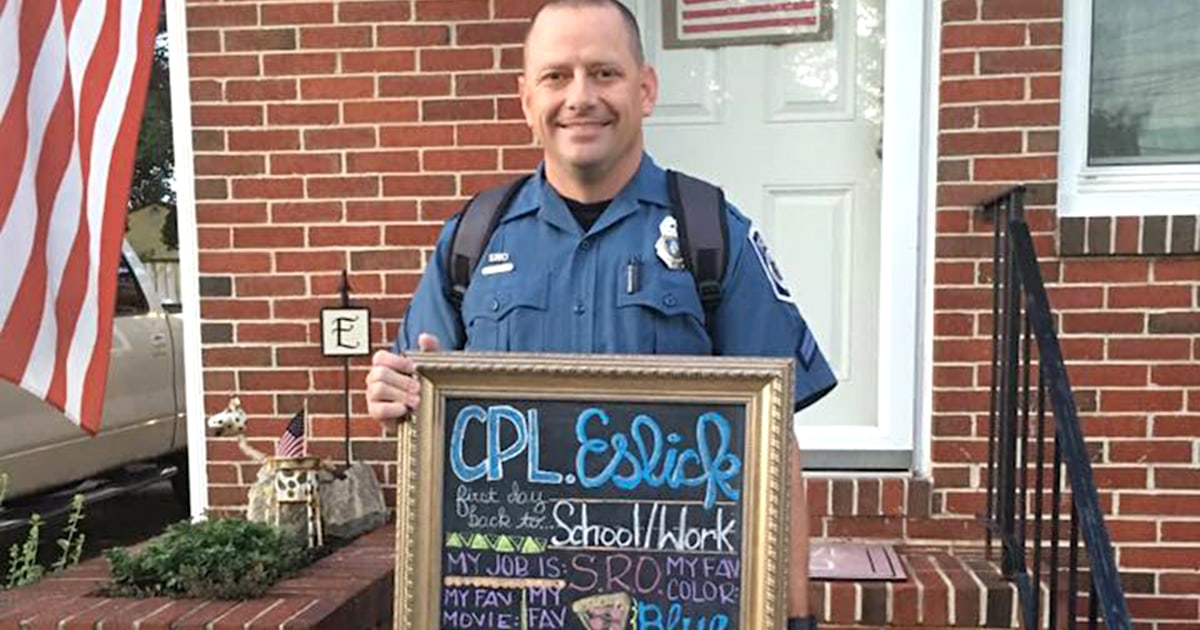 SRO
E
CPL. Eslick
first day
back to... School/Work
MY JOB IS: S.R.O. MY FAV
COLOR:
MY FAV MY
MOVIE: FAV Blue